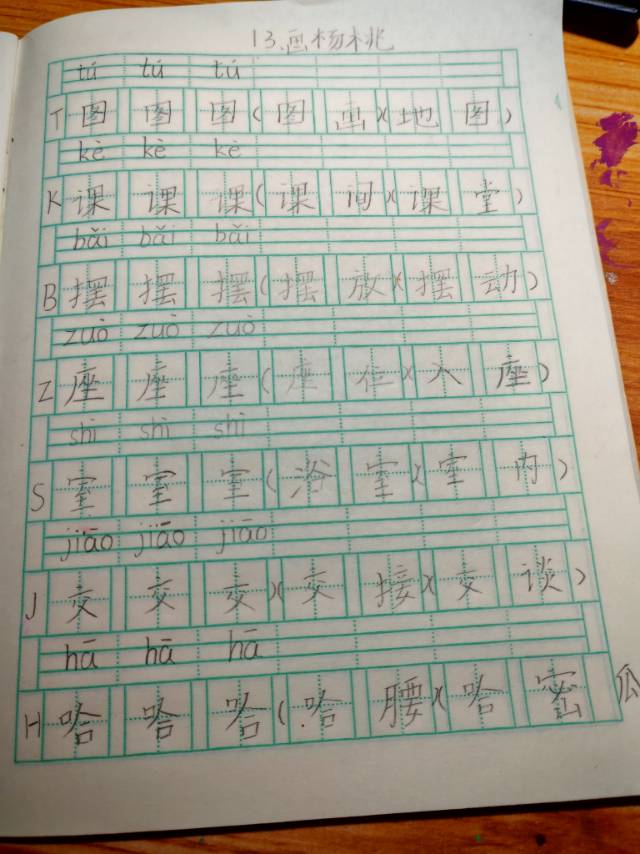 13.画杨桃
tú tú tú
T 图 图 图(图 画)(地 图)
kè kè kè
K 课 课 课(课 间)(课 堂)
bǎi bǎi bǎi
B 摆 摆 摆(摆 放)(摆 动)
zuò zuò zuò
Z 座 座 座(座 位)(入 座)
shì shì shì
S 室 室 室(浴 室)(室 内)
jiāo jiāo jiāo
J 交 交 交)(交 接)(交 谈)
hā hā hā
H 哈 哈 哈(哈 腰)(哈 密 瓜